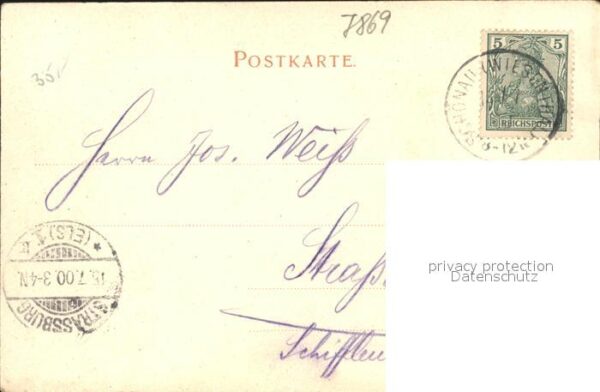 7869
POSTKARTE.
35
5 5
REICHSPOST
SCHÖNAU (WIESENTHAL)
8-12N
Herrn Jos. Weiß
Straß
Schifflen
STRASSBURG
15.7.00.3-4N.
* (ELS) 1 *
privacy protection
Datenschutz